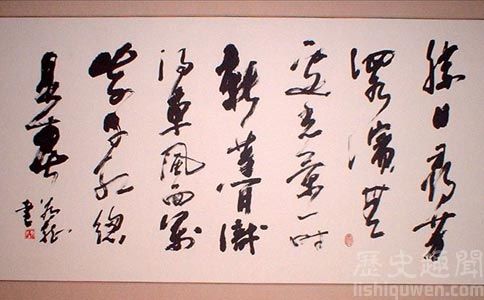 勝日尋芳
泗水濱無
邊光景一時
新等閒識
得東風面萬
紫千紅總
是春
書
歷史趣聞
lishiquwen.com